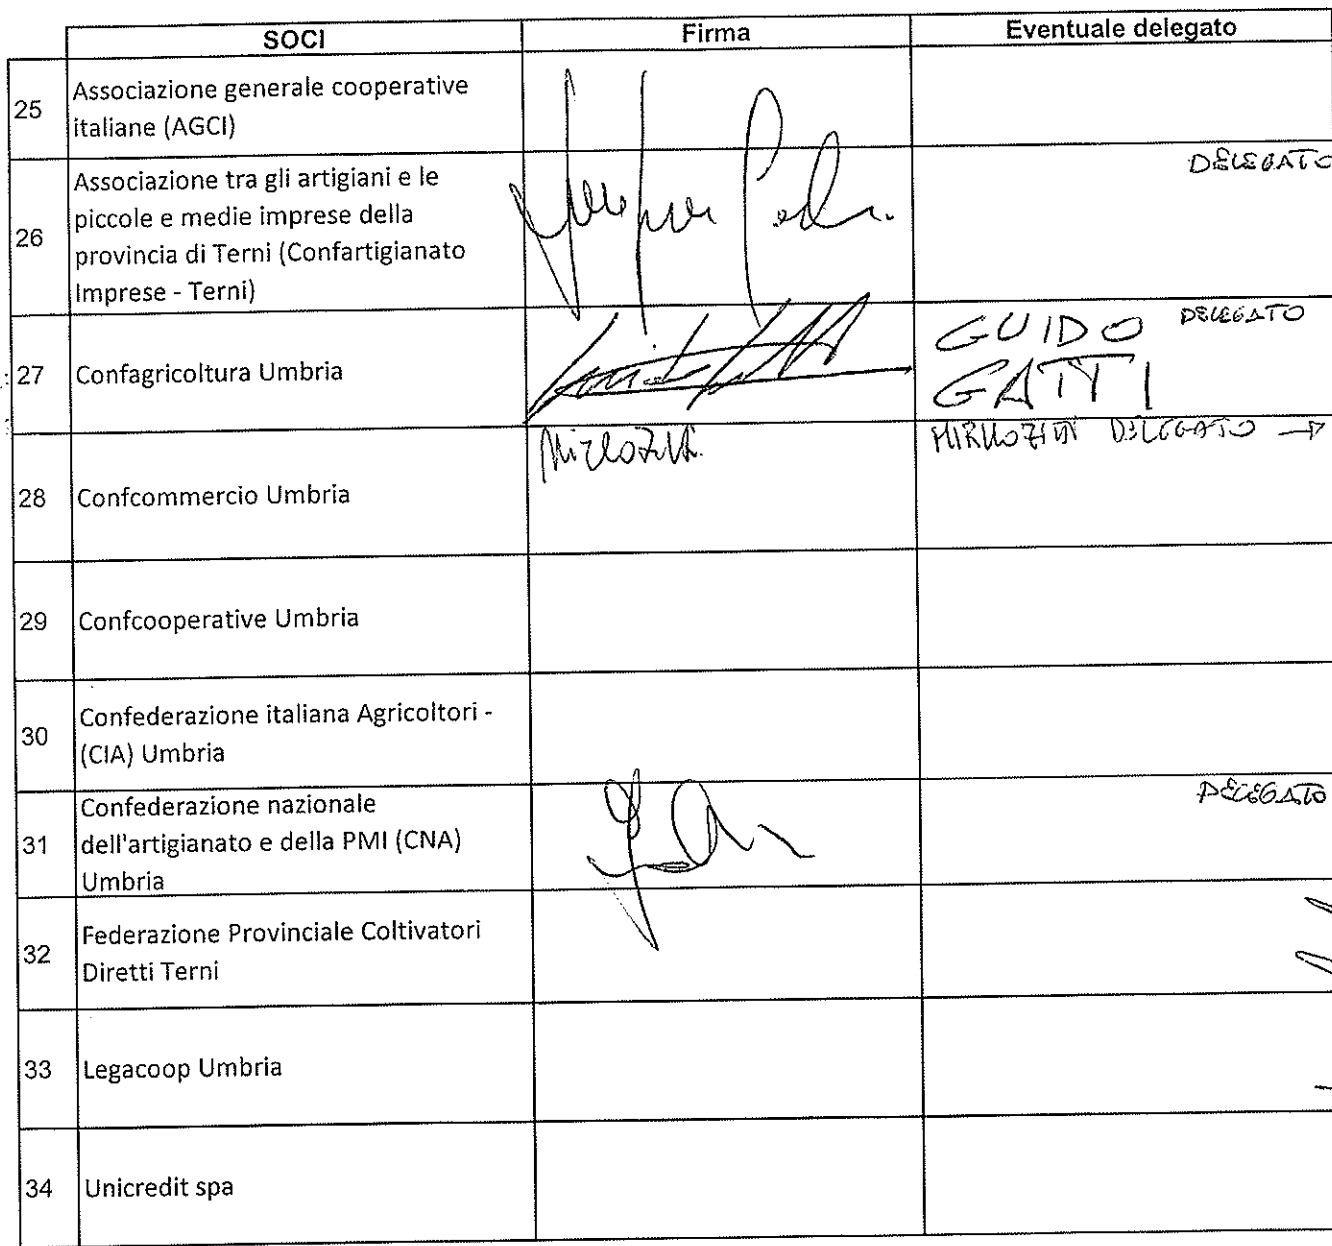 SOCI Firma Eventuale delegato
25 Associazione generale cooperative
italiane (AGCI)
DELEGATO
26 Associazione tra gli artigiani e le
piccole e medie imprese della
provincia di Terni (Confartigianato
Imprese - Terni)
27 Confagricoltura Umbria
GUIDO DELEGATO
GATTI
DELEGATO →
28 Confcommercio Umbria
29 Confcooperative Umbria
30 Confederazione italiana Agricoltori -
(CIA) Umbria
31 Confederazione nazionale
dell'artigianato e della PMI (CNA)
Umbria
DELEGATO
32 Federazione Provinciale Coltivatori
Diretti Terni
33 Legacoop Umbria
34 Unicredit spa